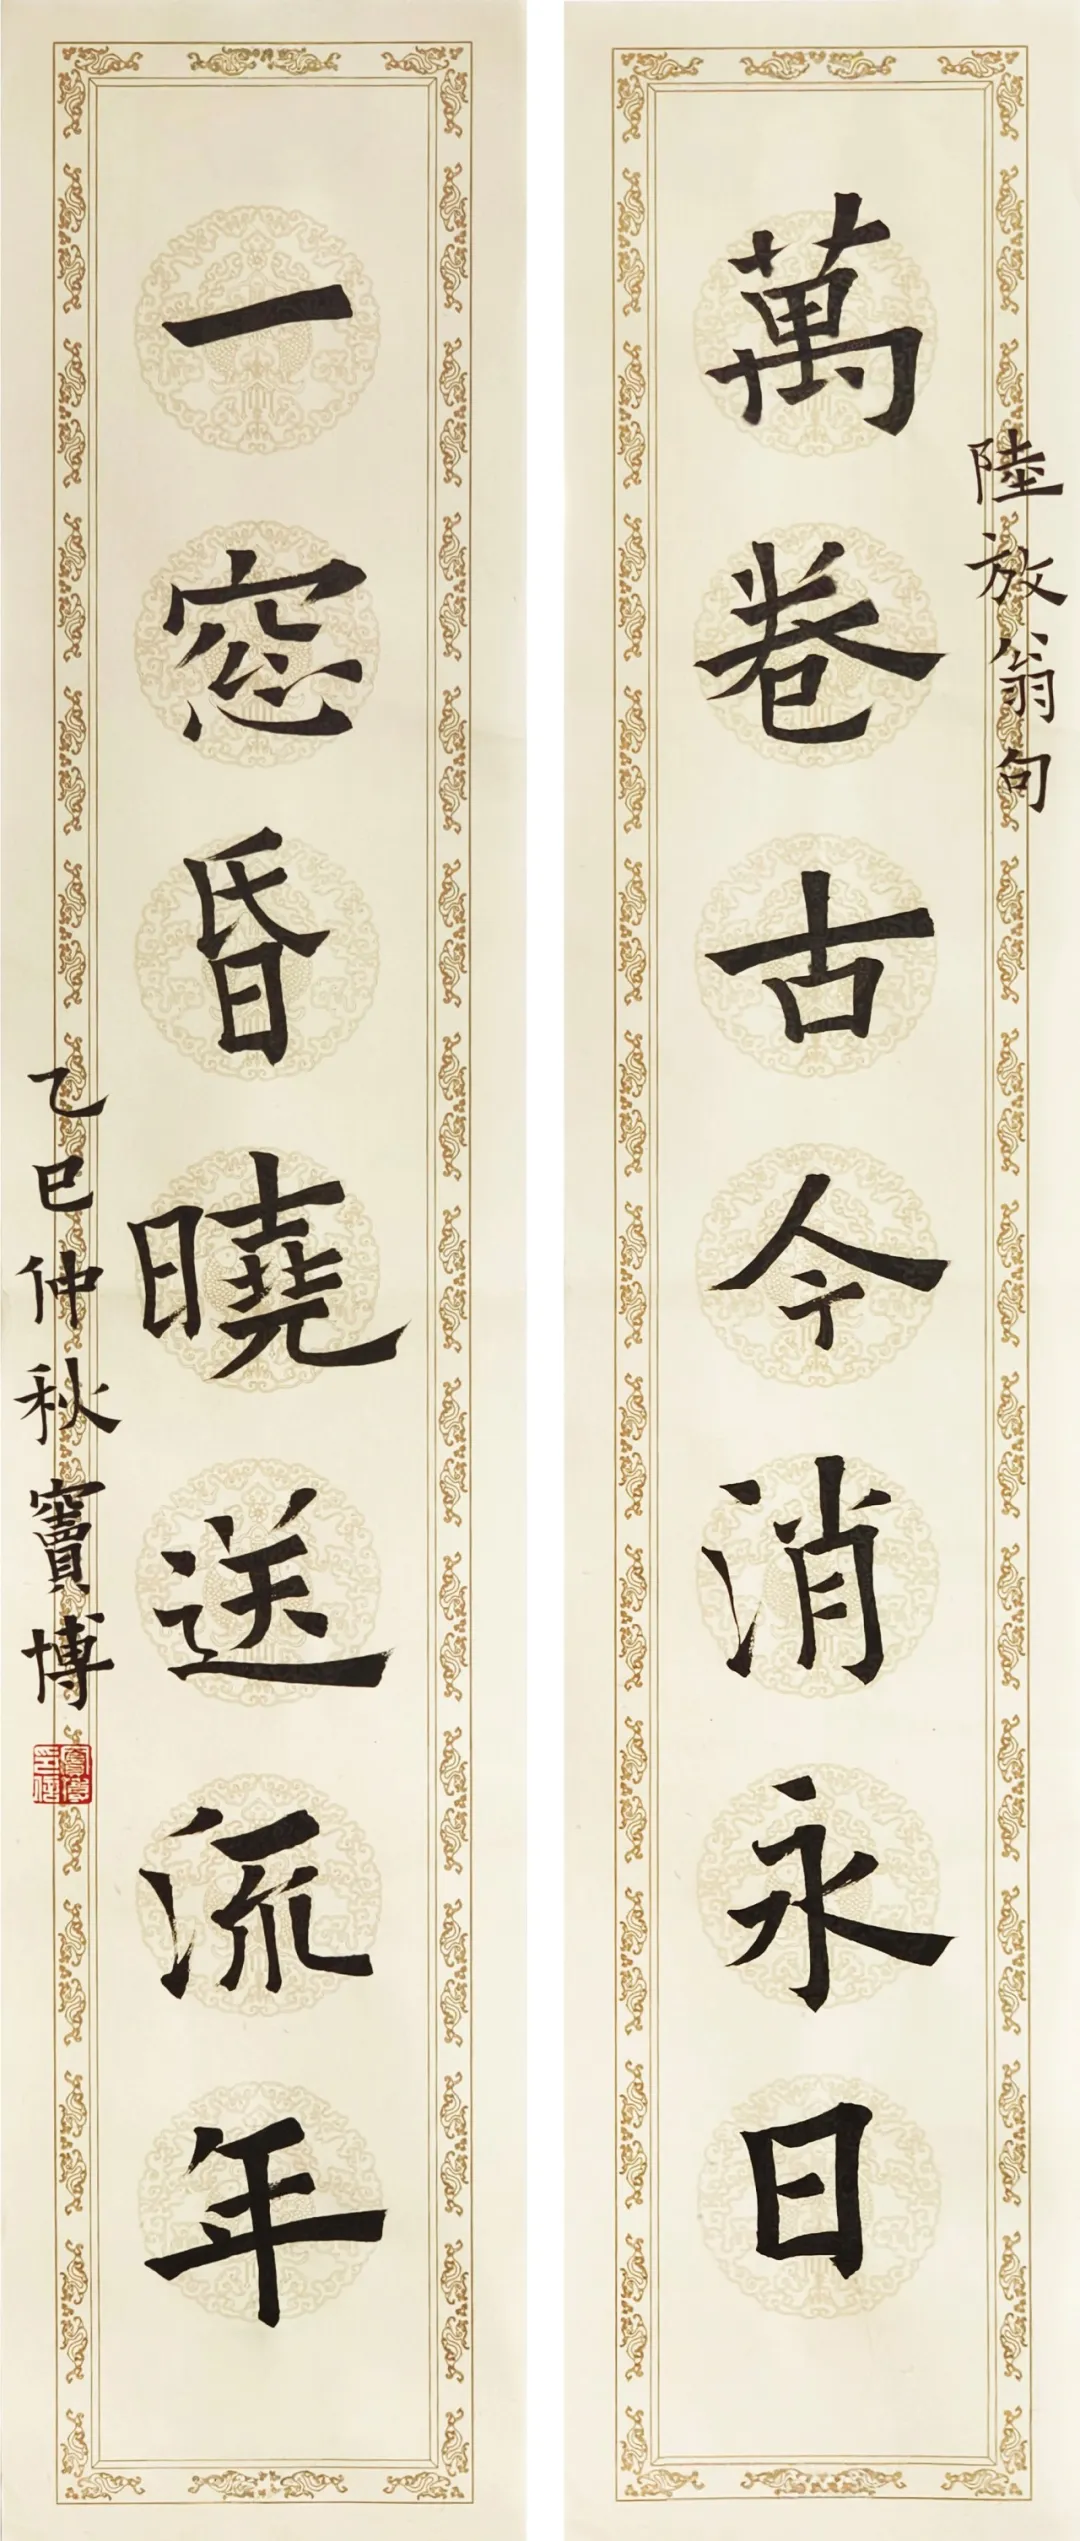 陸放翁句
萬卷古今消永日
一窓昏曉送流年
乙巳仲秋竇博
竇博印信